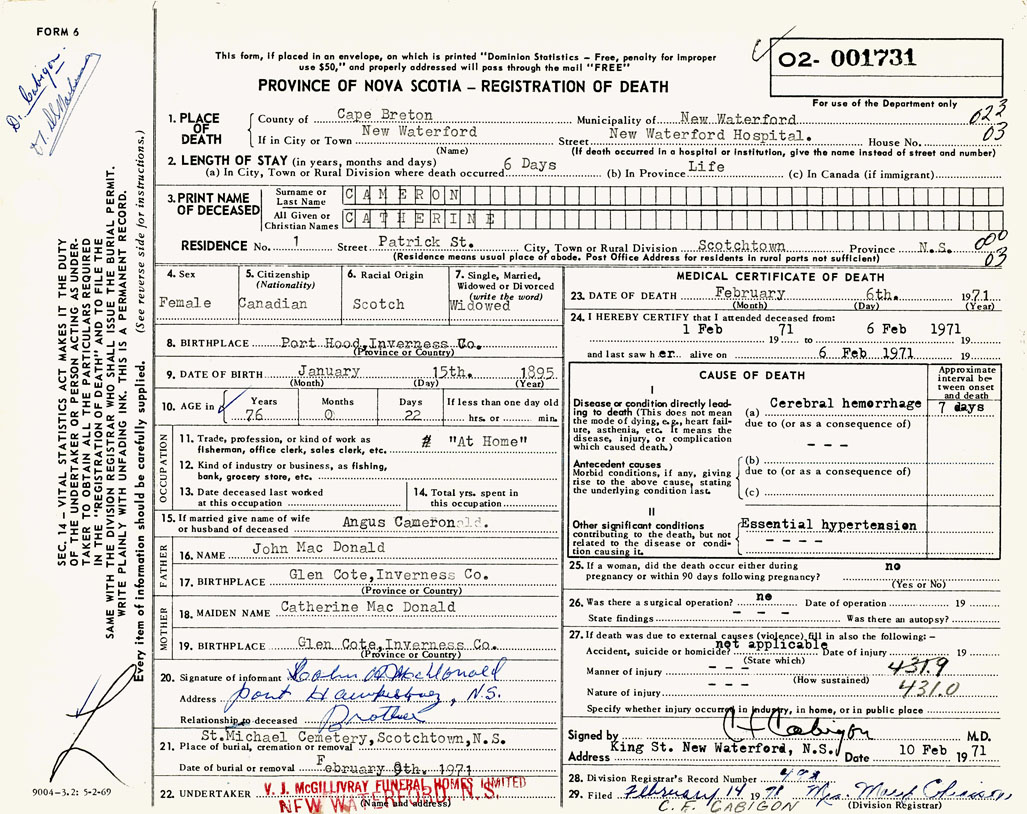 FORM 6
D. Cabigon
This form, if placed in an envelope, on which is printed "Dominion Statistics – Free, penalty for improper
use $50," and properly addressed will pass through the mail "FREE"
PROVINCE OF NOVA SCOTIA – REGISTRATION OF DEATH
02- 001731
For use of the Department only
623
03
1. PLACE OF DEATH
County of Cape Breton Municipality of New Waterford
If in City or Town New Waterford Street New Waterford Hospital. House No.
(Name) (If death occurred in a hospital or institution, give the name instead of street and number)
2. LENGTH OF STAY (in years, months and days)
(a) In City, Town or Rural Division where death occurred 6 Days (b) In Province Life (c) In Canada (if immigrant)
3. PRINT NAME OF DECEASED
Surname or Last Name CAMERON
All Given or Christian Names CATHERINE
RESIDENCE No. 1 Street Patrick St. City, Town or Rural Division Scotchtown Province N.S.
(Residence means usual place of abode. Post Office Address for residents in rural parts not sufficient)
000
03
4. Sex
Female
5. Citizenship
(Nationality)
Canadian
6. Racial Origin
Scotch
7. Single, Married,
Widowed or Divorced
(write the word)
Widowed
8. BIRTHPLACE Port Hood,Inverness Co.
(Province or Country)
9. DATE OF BIRTH January 15th. 1895
(Month) (Day) (Year)
10. AGE in Years Months Days If less than one day old
76 0 22 hrs. or min.
OCCUPATION
11. Trade, profession, or kind of work as "At Home"
fisherman, office clerk, sales clerk, etc.
12. Kind of industry or business, as fishing,
bank, grocery store, etc.
13. Date deceased last worked
at this occupation
14. Total yrs. spent in
this occupation
15. If married give name of wife
or husband of deceased Angus Cameron
FATHER
16. NAME John Mac Donald
17. BIRTHPLACE Glen Cote,Inverness Co.
(Province or Country)
MOTHER
18. MAIDEN NAME Catherine Mac Donald
19. BIRTHPLACE Glen Cote,Inverness Co.
(Province or Country)
20. Signature of informant McDonald
Address Port Hawkesbury, N.S.
Relationship to deceased Brother
St.Michael Cemetery,Scotchtown,N.S.
21. Place of burial, cremation or removal
Date of burial or removal February 9th. 1971
22. UNDERTAKER V. J. McGILLIVRAY FUNERAL HOMES LIMITED
NEW WATERFORD, N.S.
(Name and address)
MEDICAL CERTIFICATE OF DEATH
23. DATE OF DEATH February 6th. 1971
(Month) (Day) (Year)
24. I HEREBY CERTIFY that I attended deceased from:
1 Feb 71 6 Feb 1971
19 to 19
and last saw her alive on 6 Feb 1971 19
CAUSE OF DEATH
Approximate
interval be-
tween onset
and death
I
Disease or condition directly lead-
ing to death (This does not mean
the mode of dying, e.g., heart fail-
ure, asthenia, etc. It means the
disease, injury, or complication
which caused death.)
(a) Cerebral hemorrhage 7 days
due to (or as a consequence of)
– – –
Antecedent causes
Morbid conditions, if any, giving
rise to the above cause, stating
the underlying condition last.
(b)
due to (or as a consequence of)
(c)
II
Other significant conditions
contributing to the death, but not
related to the disease or condi-
tion causing it.
Essential hypertension
– – – –
25. If a woman, did the death occur either during
pregnancy or within 90 days following pregnancy? no
(Yes or No)
26. Was there a surgical operation? no Date of operation 19
State findings – – – Was there an autopsy?
27. If death was due to external causes (violence) fill in also the following:–
Accident, suicide or homicide? not applicable Date of injury 19
(State which)
Manner of injury – – – 431.9
(How sustained)
Nature of injury – – – 431.0
Specify whether injury occurred in industry, in home, or in public place
Signed by C F Cabigon M.D.
Address King St. New Waterford, N.S. Date 10 Feb 1971
28. Division Registrar's Record Number
29. Filed February 14 19 Mrs.
(Division Registrar)
C. F. CABIGON
SEC. 14 – VITAL STATISTICS ACT MAKES IT THE DUTY
OF THE UNDERTAKER OR PERSON ACTING AS UNDER-
TAKER TO OBTAIN ALL THE PARTICULARS REQUIRED
IN THE "REGISTRATION OF DEATH" AND TO FILE THE
SAME WITH THE DIVISION REGISTRAR WHO SHALL ISSUE THE BURIAL PERMIT.
WRITE PLAINLY WITH UNFADING INK. THIS IS A PERMANENT RECORD.
Every item of information should be carefully supplied. (See reverse side for instructions.)
9004-3.2: 5-2-69